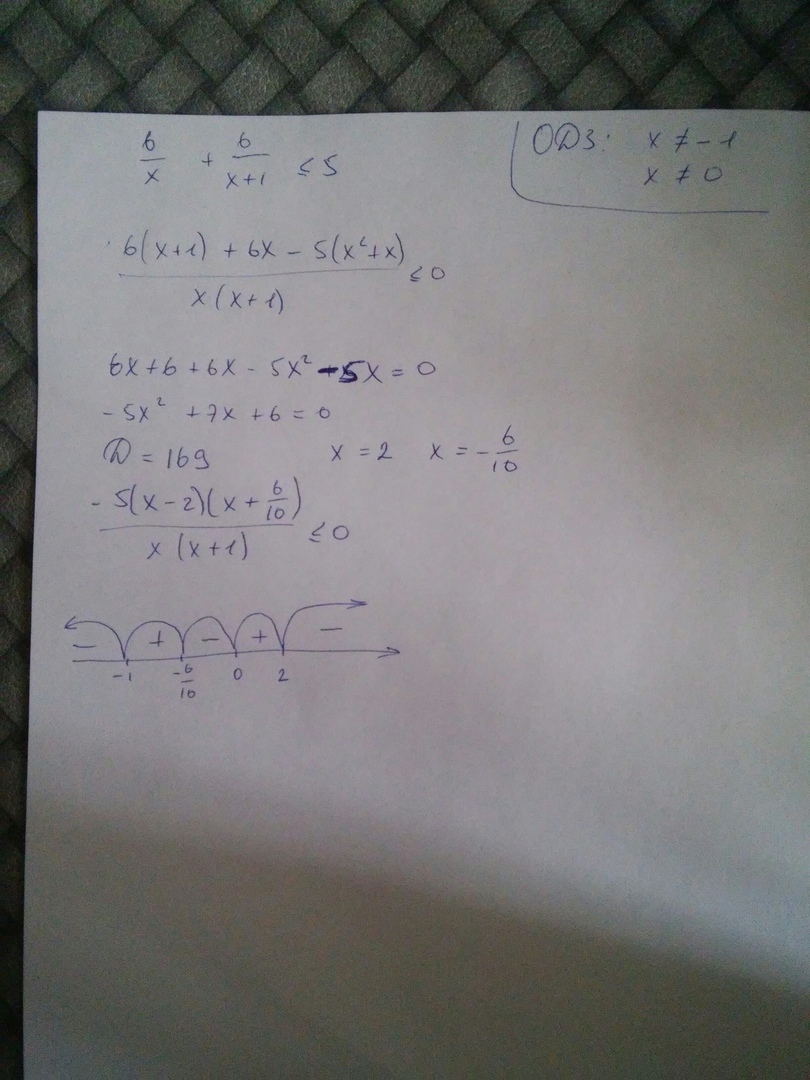 6/x + 6/(x+1) ≤ 5
ОДЗ: x ≠ -1
x ≠ 0
(6(x+1) + 6x - 5(x²+x))/(x(x+1)) ≤ 0
6x + 6 + 6x - 5x² - 5x = 0
-5x² + 7x + 6 = 0
D = 169 x = 2 x = -6/10
(-5(x-2)(x + 6/10))/(x(x+1)) ≤ 0
- + - + -
-1 -6/10 0 2